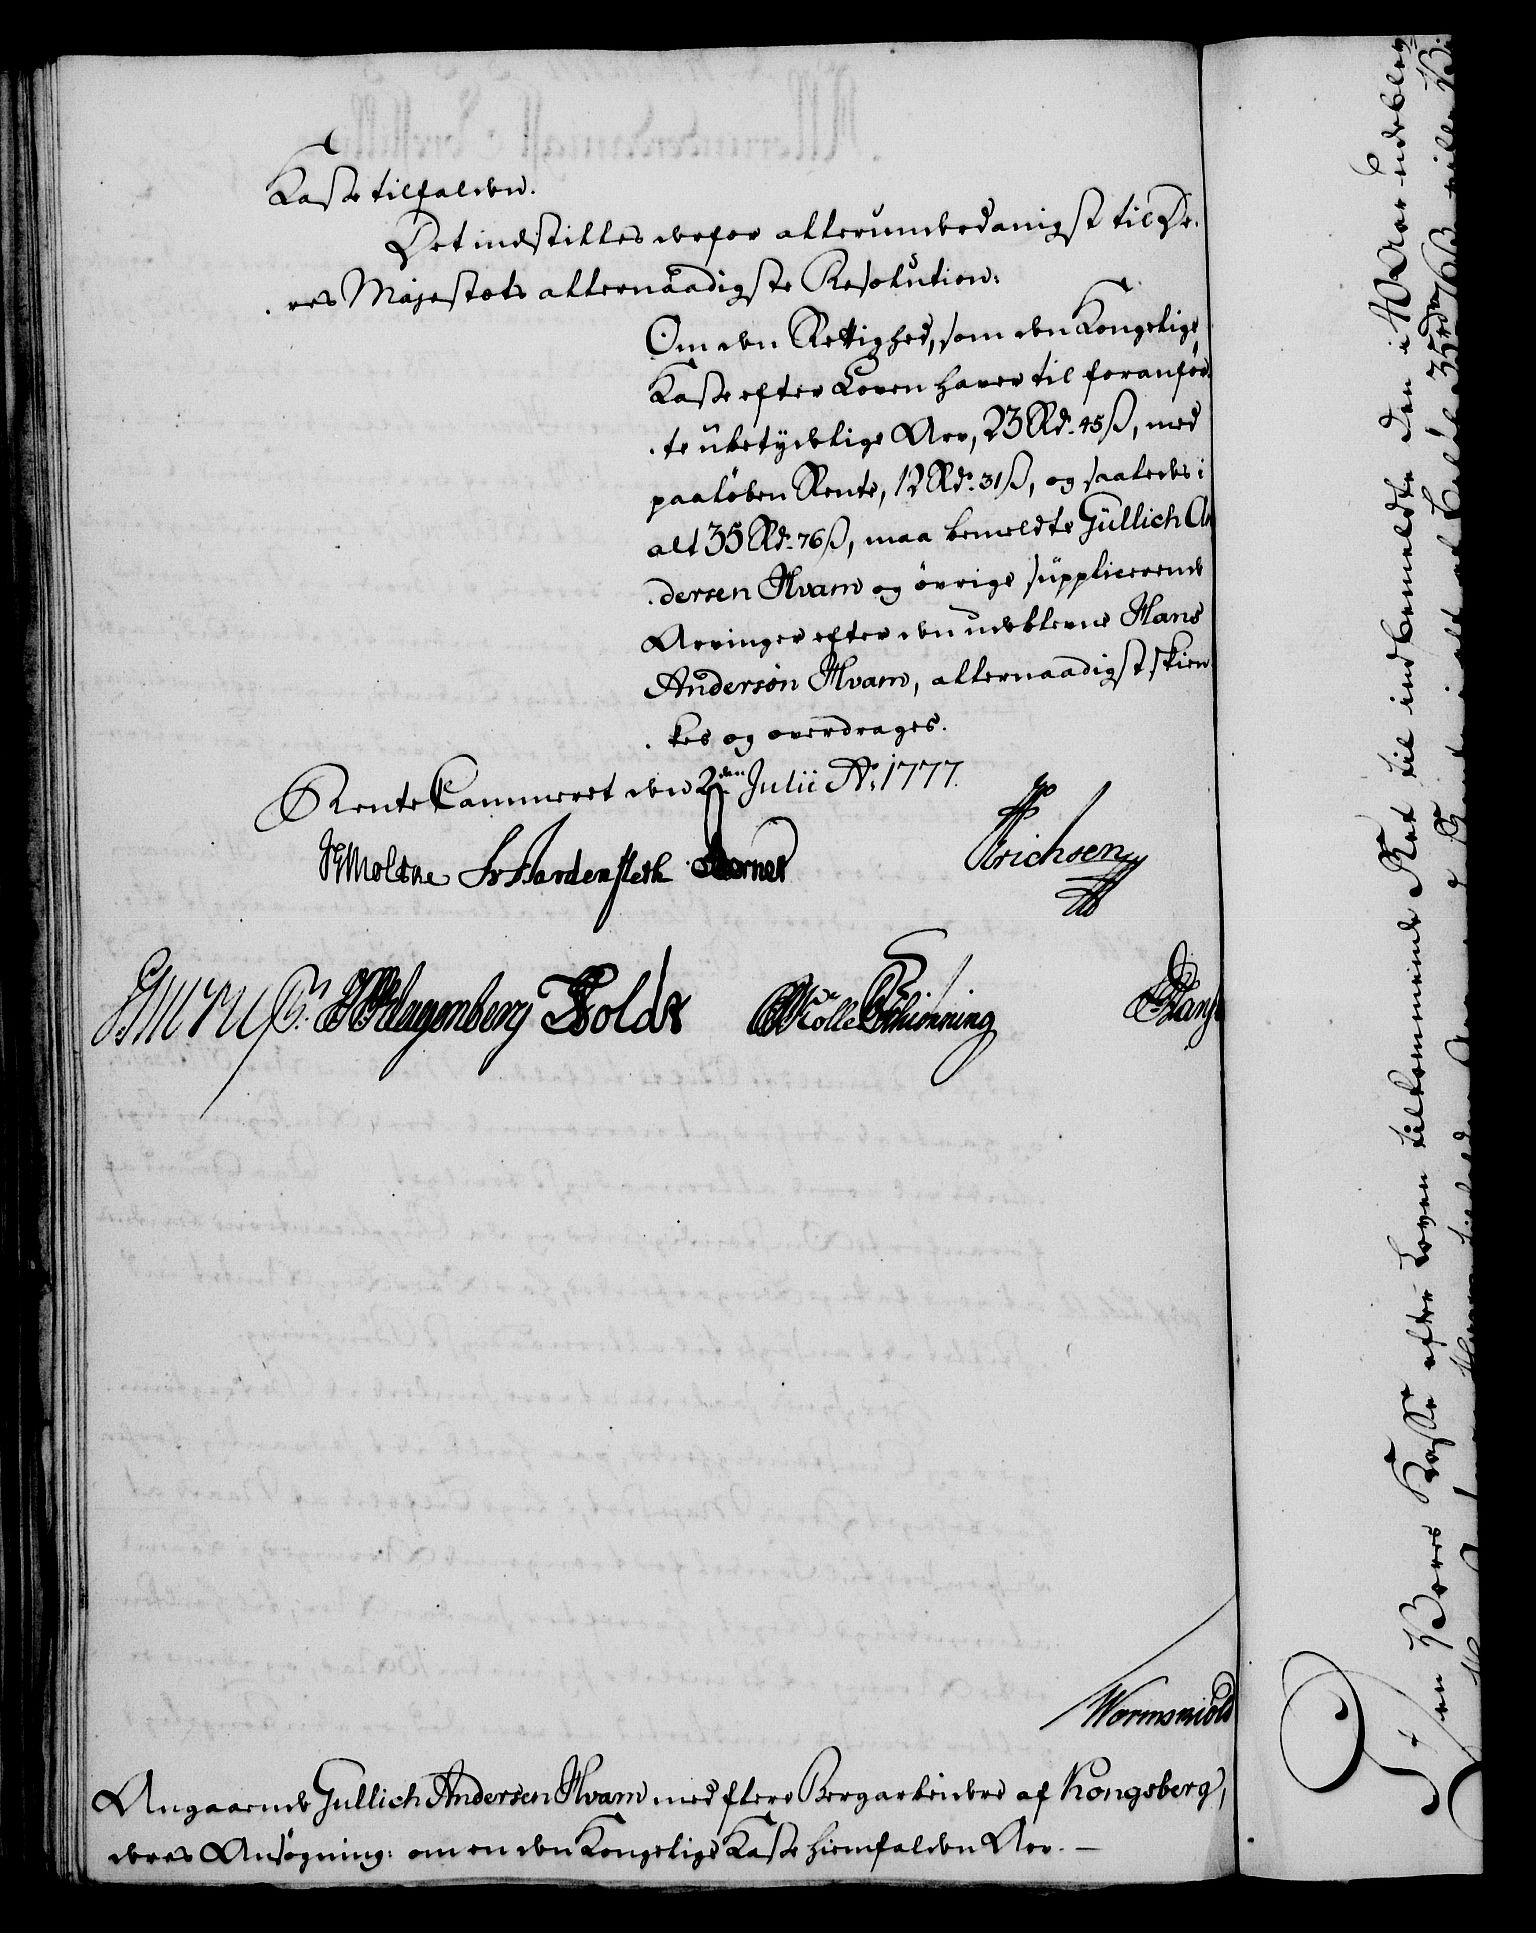 Kasse tilfalden.
Det indstilles derfor allerunderdanigst til De-
res Majestæts allernaadigste Resolution:
Om den Rettighed, som den Kongelige
Kasse efter Loven haver til foranfør-
te ubetydelige Arv, 23 Rd. 45 ß, med
paaløben Rente, 12 Rd. 31 ß, og saaledes i
alt 35 Rd. 76 ß, maa bemeldte Güllich An
dersen Hvam og øvrige supplicerende
Arvinger efter den udeblevne Hans
Andersøn Hvam, allernaadigst skien-
kes og overdrages.
RenteCammeret den 2den Julii Ao. 1777.
Moltke Hardenfleth Berner Erichsen
Klagenberg Holdt Schiønning
Wormskiold
Angaaende Gullich Andersen Hvam med flere Bergarbeidere af Kongsberg,
deres Ansøgning: om en den Kongelige Kasse hiemfalden Arv. —
Den Vores Kasse efter Loven tilkommende Ret til indbemeldte den i 40 Aar udeblev-